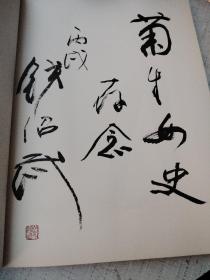 菊生女史
存念
丙戌
钱绍武